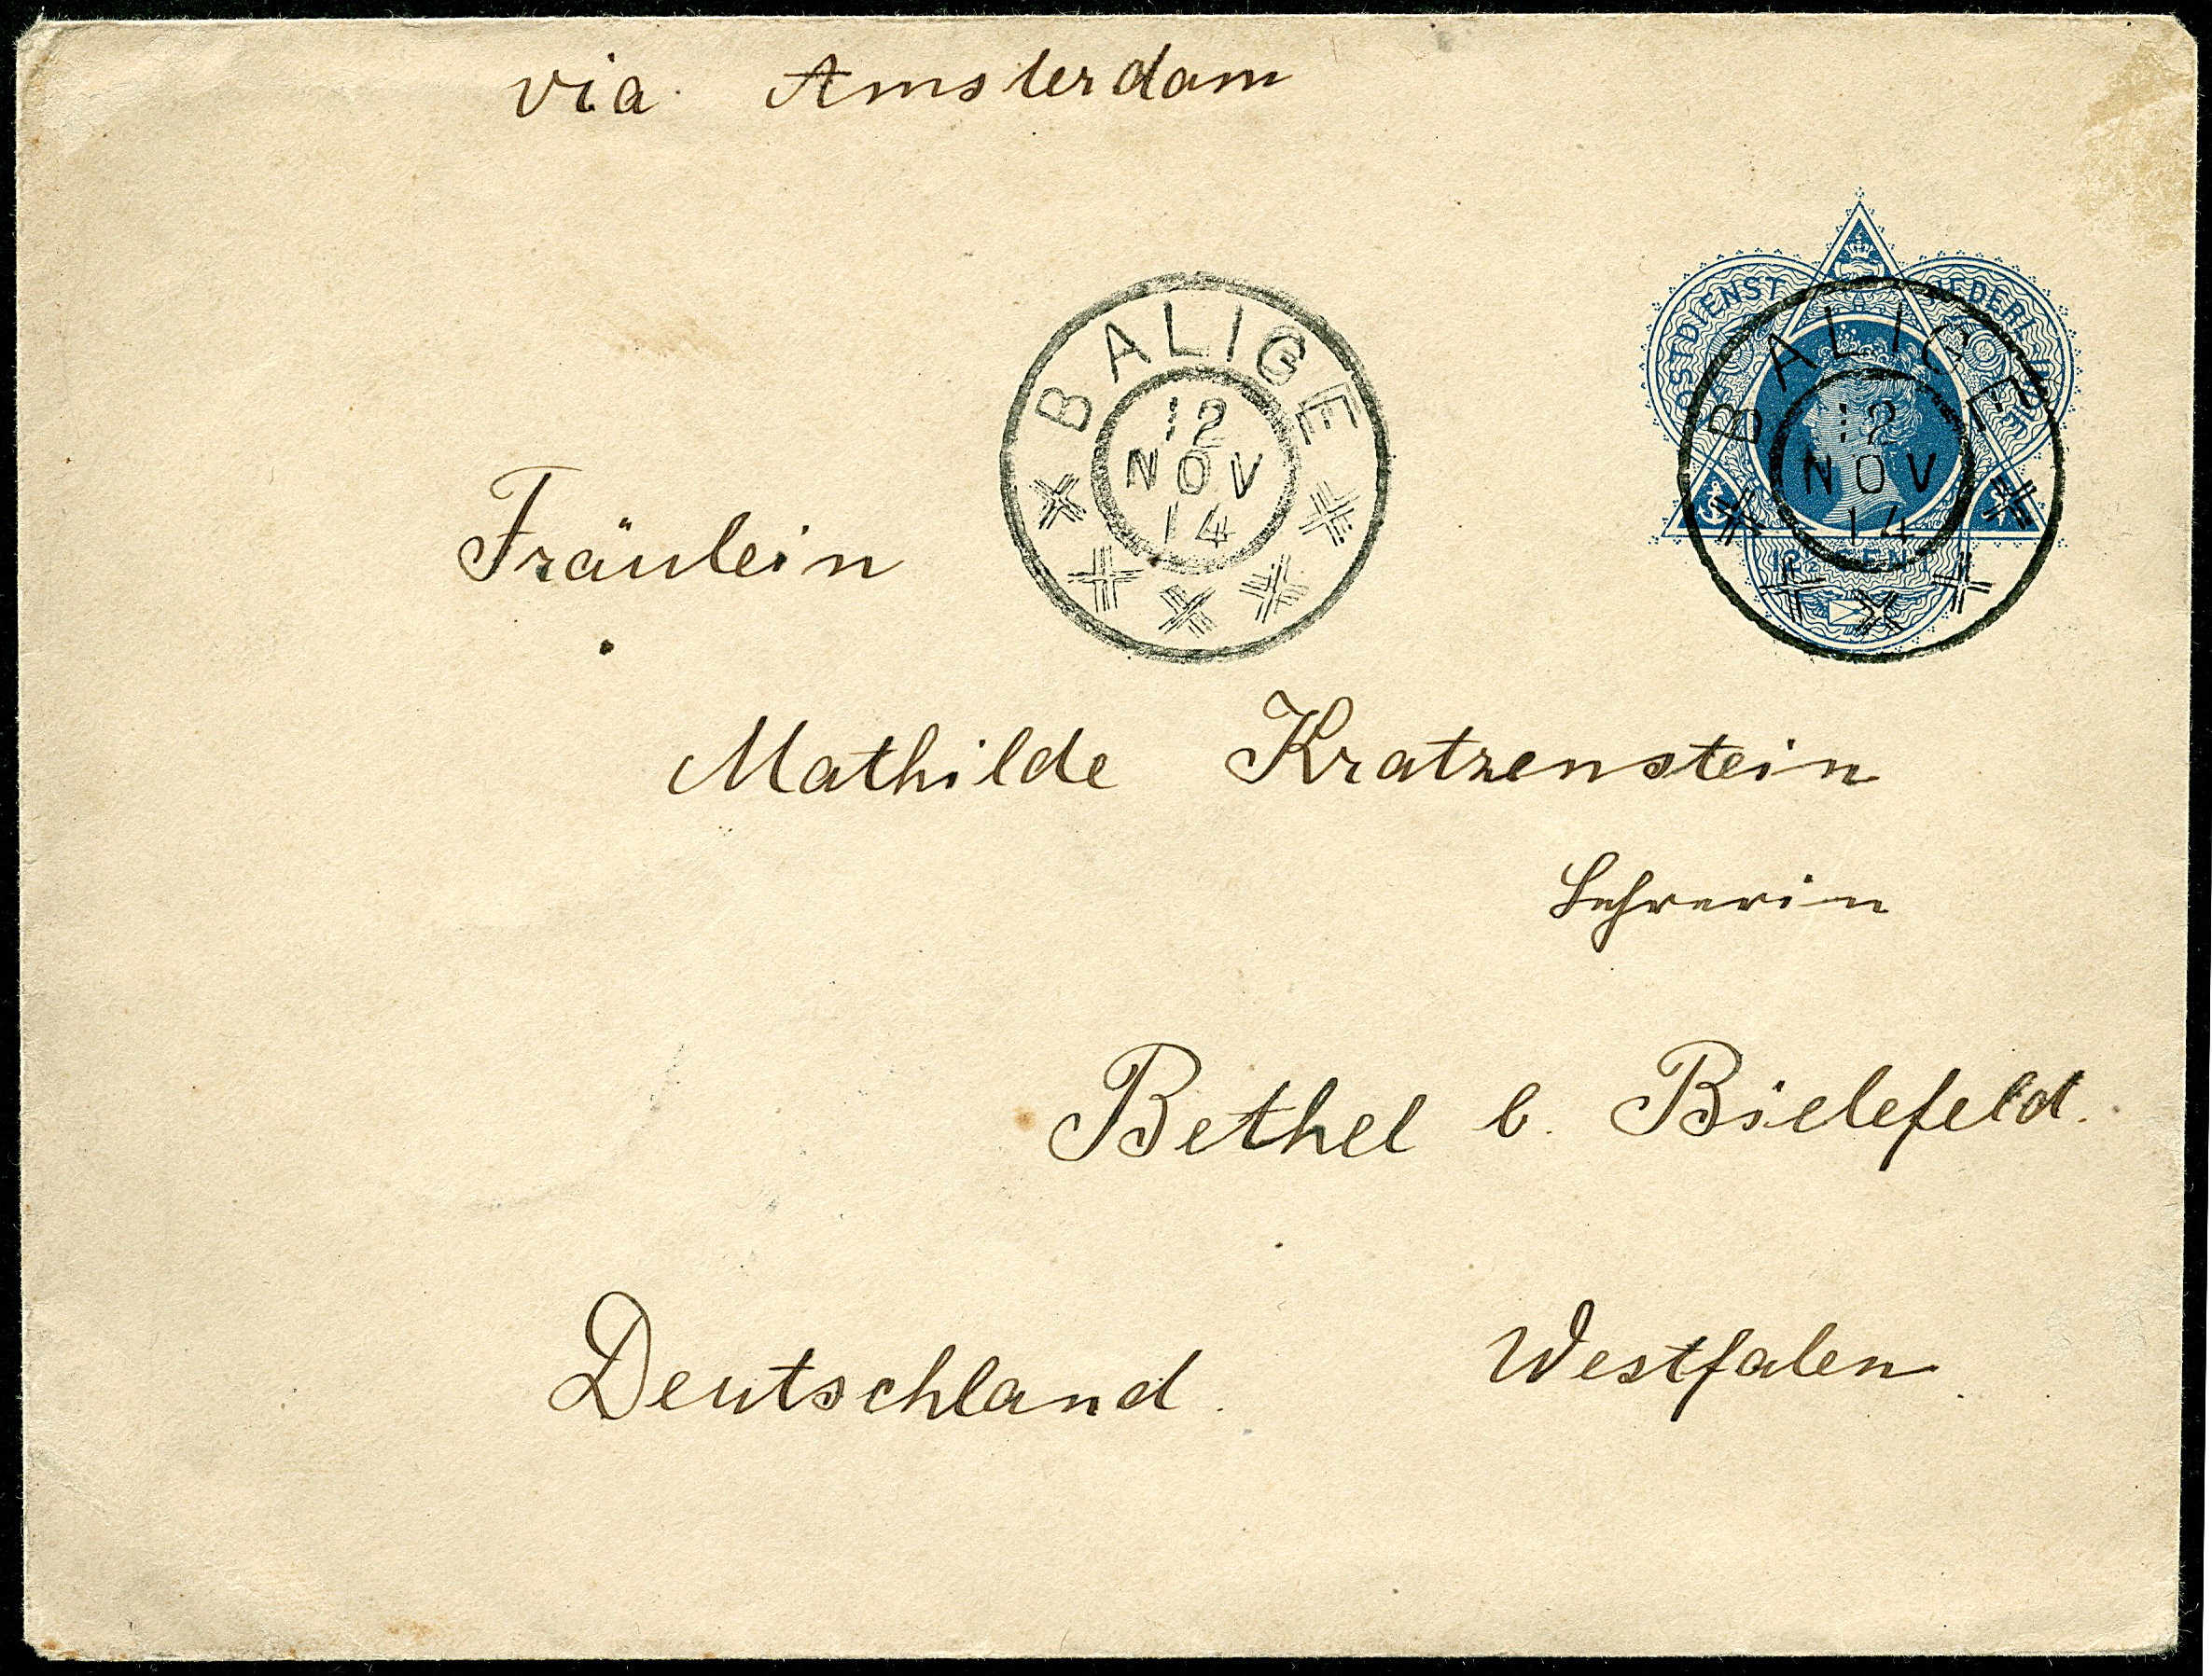 via Amsterdam
POSTDIENST NEDERL.
BALIGE
12
NOV
14
BALIGE
12
NOV
14
12½ CENT
Fräulein
Mathilde Kratzenstein
Lehrerin
Bethel b. Bielefeld.
Westfalen
Deutschland.